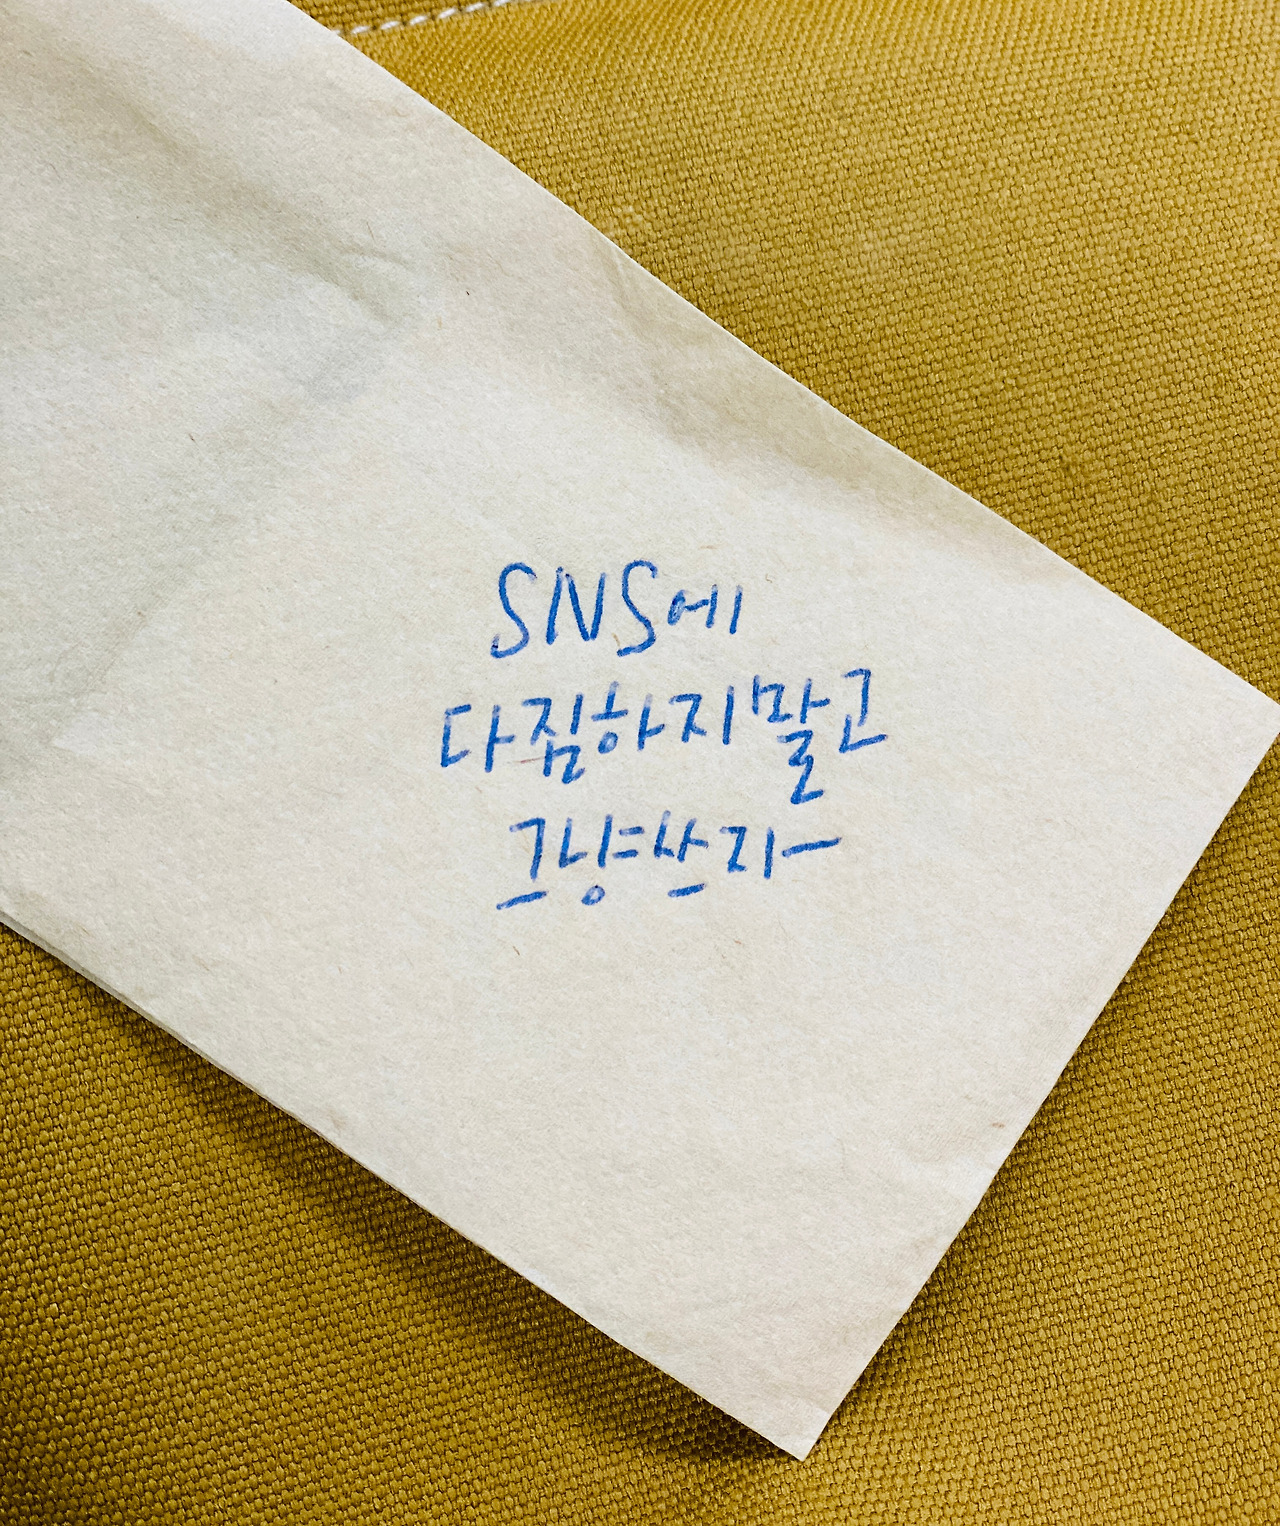 SNS에
다짐하지 말고
그냥